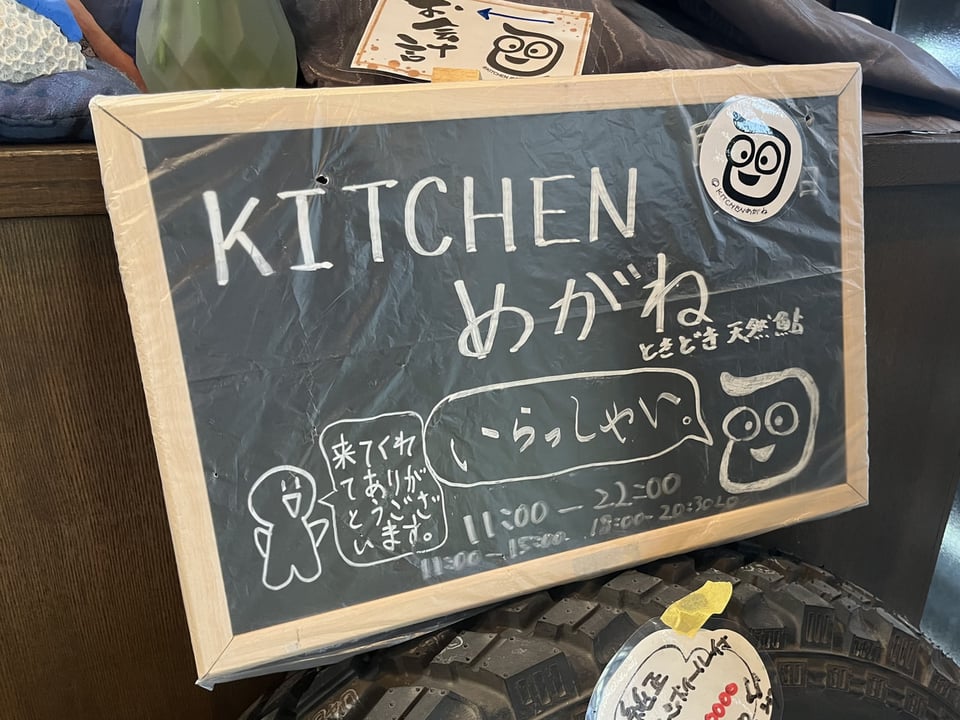 お会計
KITCHEN
めがね
ときどき天然鮎
© KITCHENめがね
いらっしゃい。
来てくれ
てありが
とうござ
います。
11:00 - 22:00
11:00 - 15:00 18:00 - 20:30LO
純正